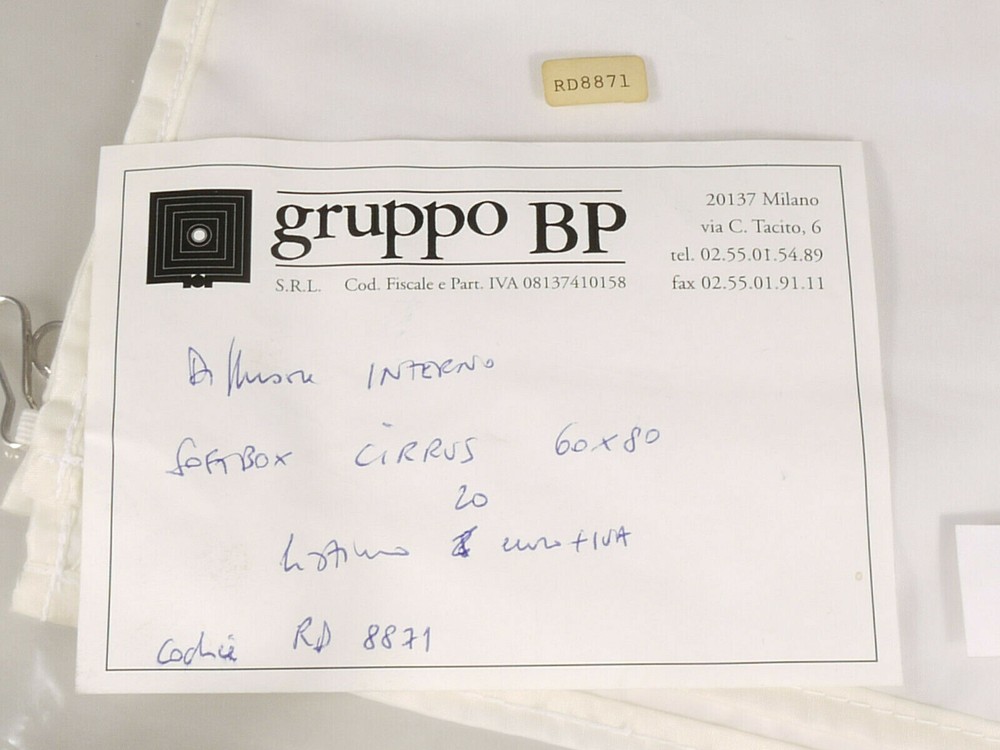 RD8871
gruppo BP
S.R.L. Cod. Fiscale e Part. IVA 08137410158
20137 Milano
via C. Tacito, 6
tel. 02.55.01.54.89
fax 02.55.01.91.11
Diffusore INTERNO
SOFTBOX CIRRUS 60x80
20
Listino euro + IVA
Codice RD 8871